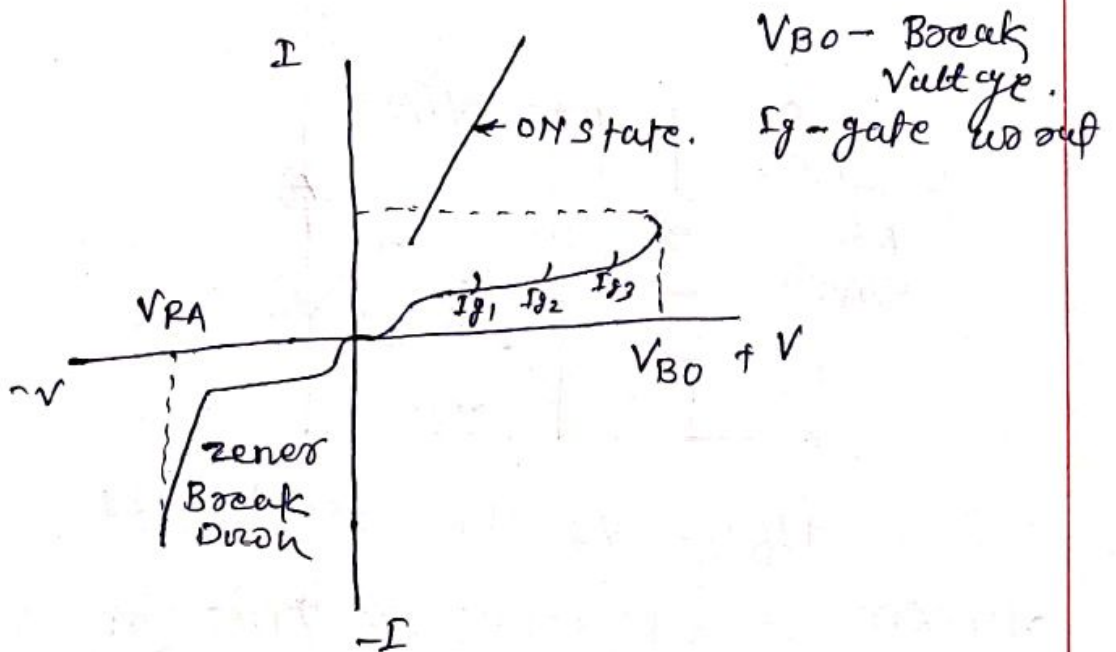 V_BO - Break
Valtge.
Ig - gate
I
← ON State.
Ig1 Ig2 Ig3
V_RA
-V
V_BO + V
zener
Break
Down
-I